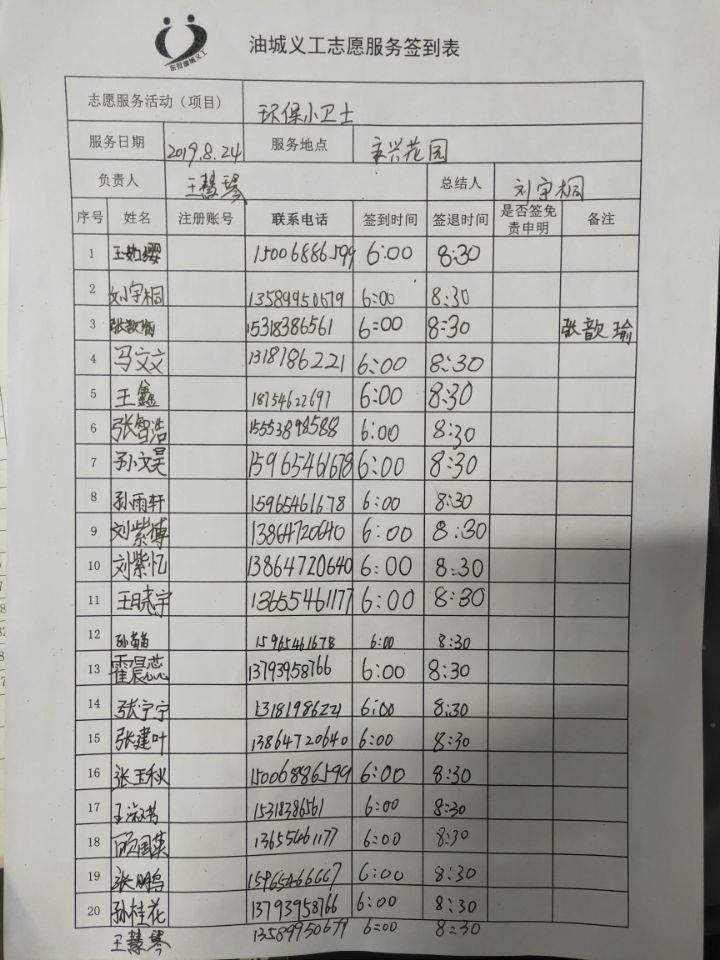 东营油城义工
油城义工志愿服务签到表
志愿服务活动（项目） 环保小卫士
服务日期 2019.8.24 服务地点 花园
负责人 王慧琴 总结人 刘宇桐
序号 姓名 注册账号 联系电话 签到时间 签退时间 是否签免责申明 备注
1 15006886599 6:00 8:30
2 刘宇桐 13589950679 6:00 8:30
3 张歆瑜 15318386561 6:00 8:30 张歆瑜
4 马文文 1318186221 6:00 8:30
5 王鑫 18754622697 6:00 8:30
6 张智浩 15553898588 6:00 8:30
7 孙文昊 15965461678 6:00 8:30
8 孙雨轩 15965461678 6:00 8:30
9 刘紫博 13864720640 6:00 8:30
10 刘紫忆 13864720640 6:00 8:30
11 王晓宇 13655461177 6:00 8:30
12 孙苗苗 15965461678 6:00 8:30
13 霍晨蕊 13793958766 6:00 8:30
14 张宁宁 13181986221 6:00 8:30
15 张建叶 13864720640 6:00 8:30
16 张玉秋 15006886599 6:00 8:30
17 15318386561 6:00 8:30
18 13655461177 6:00 8:30
19 张鹏 15965466667 6:00 8:30
20 孙桂花 13793958766 6:00 8:30
王慧琴 13589950679 6:00 8:30